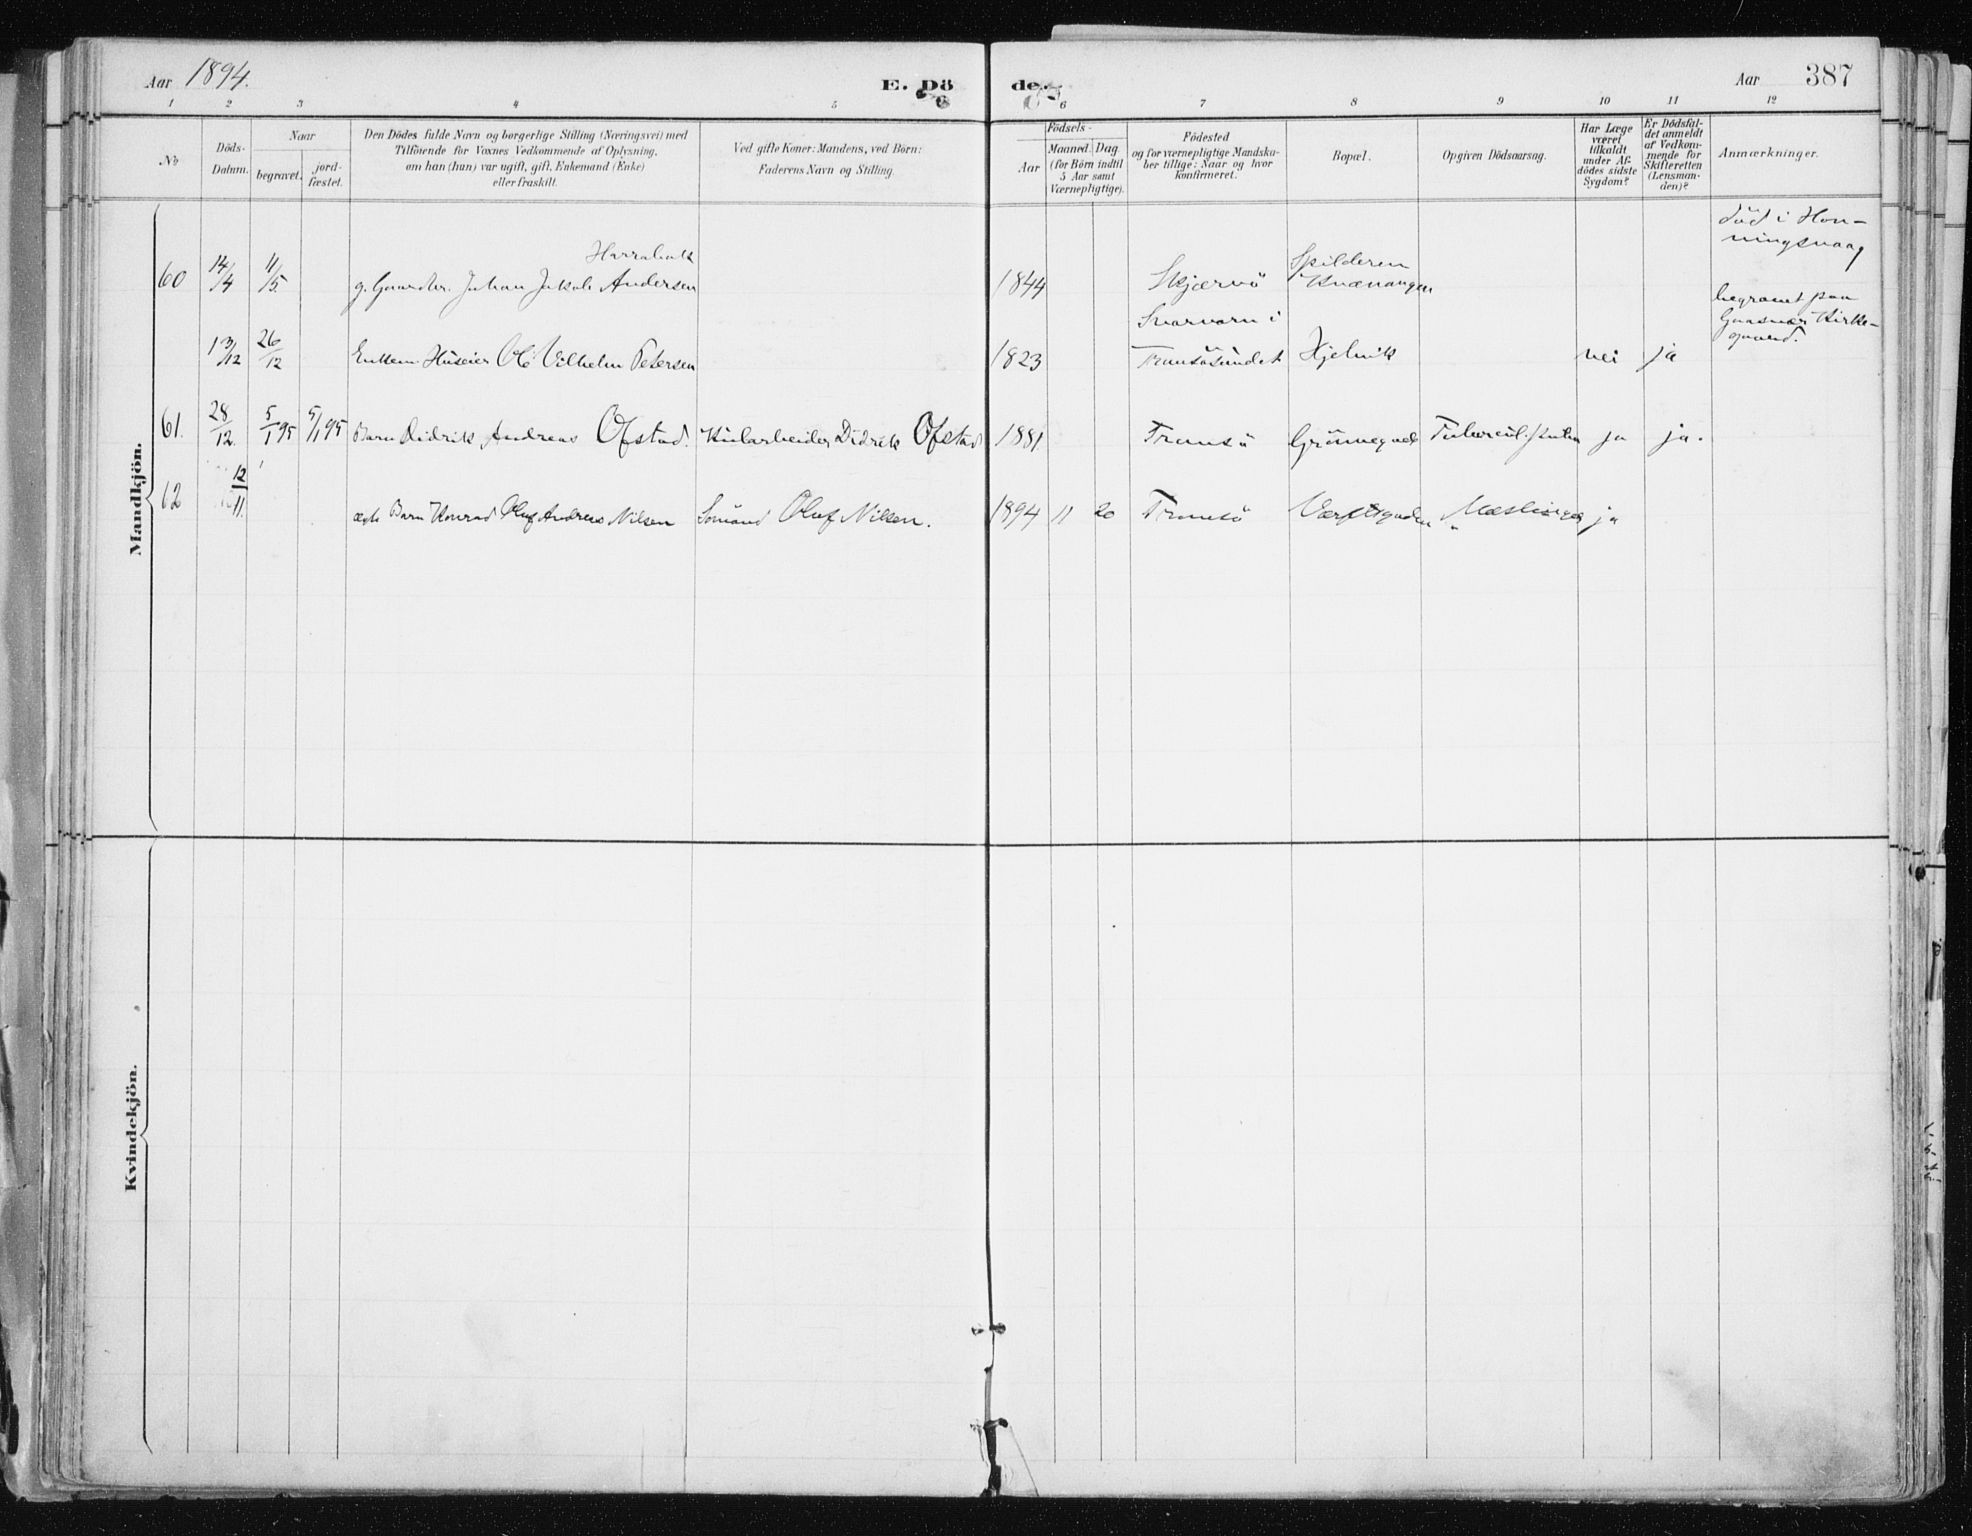 Aar 1894.
E. Döde.
Aar 387
1 2 3 4 5 6 7 8 9 10 11 12
No
Döds-
Datum.
Naar
begravet.
jord-
fæstet.
Den Dödes fulde Navn og borgerlige Stilling (Næringsvei) med
Tilföiende for Voxnes Vedkommende af Oplysning,
om han (hun) var ugift, gift, Enkemand (Enke)
eller fraskilt.
Ved gifte Koner: Mandens, ved Börn:
Faderens Navn og Stilling.
Födsels-
Aar
Maaned. Dag
(for Börn indtil
5 Aar samt
Værnepligtige).
Födested
og for værnepligtige Mandska-
ber tillige: Naar og hvor
konfirmeret.
Bopæl.
Opgiven Dödsaarsag.
Har Læge
været
tilkaldt
under Af-
dödes sidste
Sygdom?
Er Dödsfal-
det anmeldt
af Vedkom-
mende for
Skifteretten
(Lensman-
den)?
Anmærkninger.
Mandkjön.
död i Hon-
ningsvaag
60 14/4 11/5. g. Gaardbr. Johan Jakob Andersen 1844 Skjærvö Spilderen
Kvænangen
begravet paa
Kirke-
gaard.
13/12 26/12 Enkem. Huseier Ole Vilhelm Petersen 1823 i
Tromsösundet nei ja
61. 28/12. 5/1 95 5/1 95 Barn Didrik Andreas Ofstad. Didrik Ofstad 1881. Tromsö Grönnegade ja ja.
62 12/11. ægte Barn Konrad Oluf Andreas Nilsen Sömand Oluf Nilsen. 1894 11 20 Tromsö Værftsgaden Mæslinger ja
Kvindekjön.